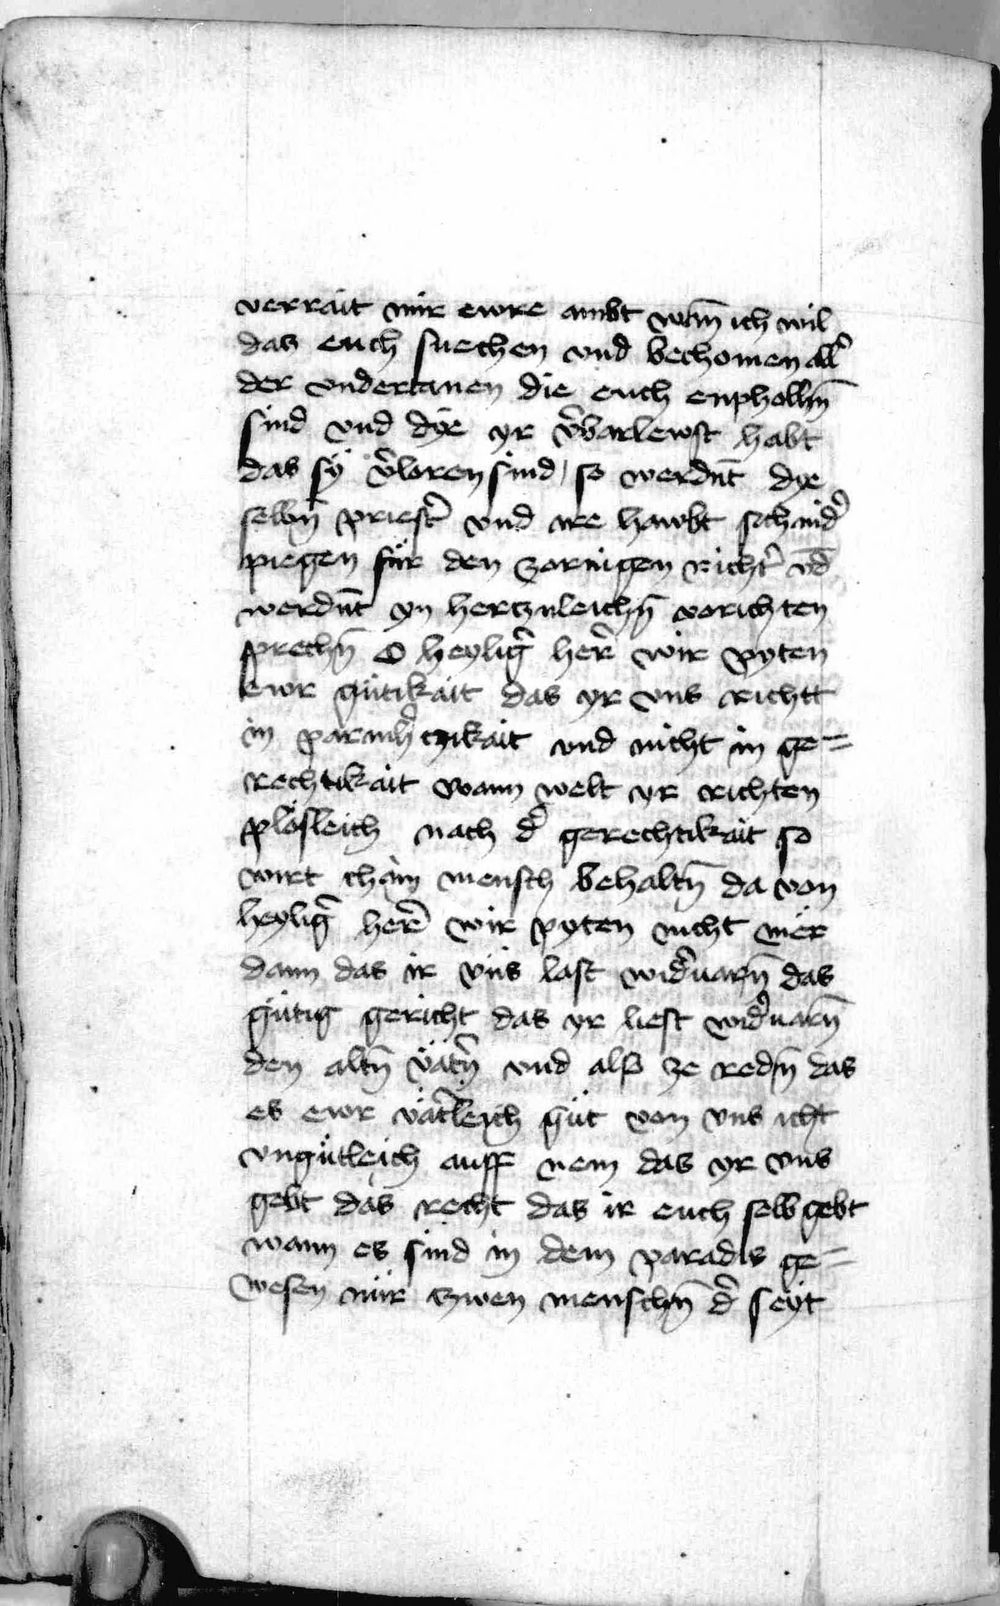 verrait mir ewre ambt wan̄ ich wil
das euch suechen vnd bechomen all̾
der vndertanen die euch enpholhn̄
sind vnd dye yr v̾barlewst habt
das sy v̾loren sind / so werdnt̄ dye
selbn̄ priest̾ vnd ire hawbt schaid̾
piegen für den zornigen richt̾ vn̄d
werdnt̄ yn hertznleichn̄ vorichten
sprechn̄ O heylig̾ her̾ wir pyten
ewr gütikait das yr vns richtt
in parmh̾tzikait vnd nicht in ge=
rechtikait wann welt yr richten
plösleich nach d̾ gerechtikait so
wirt chain mensch behaltn̄ da von
heylig̾ her̾ wir pyten nicht mer
dann das ir vns last wid̾uarn̄ das
gütig gericht das yr liest wid̾uarn̄
den altn̄ vät̾n vnd also ze redn̄ das
es ewr vät̾leich güt von vns icht
vngütleich auff nem das yr vns
gebt das recht das ir euch selb gebt
wann es sind in dem paradis ge=
wesen nür zwen menschn̄ d̾ seyt